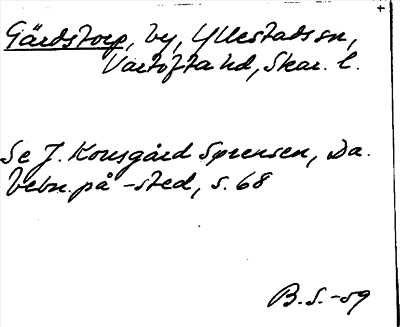 Gärdstorp, by, Yllestads sn,
Vartofta hd, Skar. l.
Se J. Kousgård Sørensen, Da.
bebn. på -sted, s. 68
B.S.-59